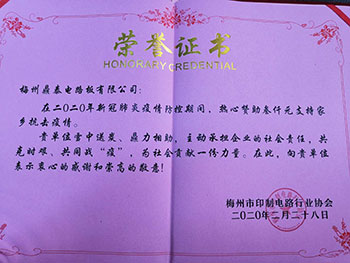 荣誉证书
HONORARY CREDENTIAL
梅州鼎泰电路板有限公司:
在二〇二〇年新冠肺炎疫情防控期间,热心赞助叁仟元支持家
乡抗击疫情。
贵单位雪中送炭、鼎力相助,主动承担企业的社会责任,共
克时艰、共同战“疫”,为社会贡献一份力量。在此,向贵单位
表示衷心的感谢和崇高的敬意!
梅州市印制电路行业协会
二〇二〇年二月二十八日